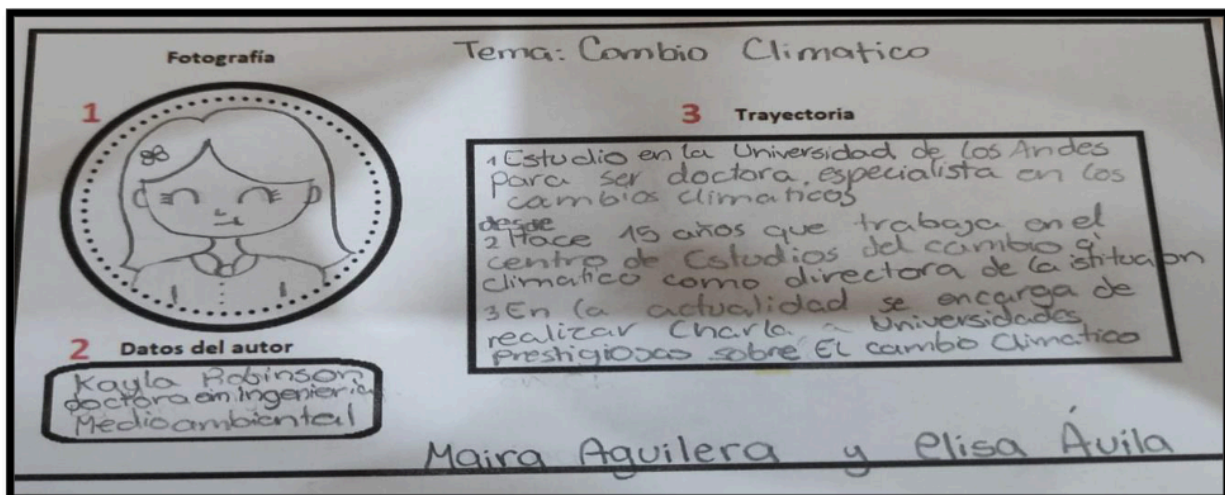 Fotografía
Tema: Cambio Climatico
1
3 Trayectoria
1 Estudio en la Universidad de los Andes
para ser doctora, especialista en los
cambios climaticos
desde
2 Hace 15 años que trabaja en el
centro de Estudios del cambio
climatico como directora de la istitucion
3 En la actualidad se encarga de
realizar Charla a Universidades
prestigiosas sobre El cambio Climatico
2 Datos del autor
Kayla Robinson
doctora en ingenieria
Medioambiental
Maira Aguilera y Elisa Ávila